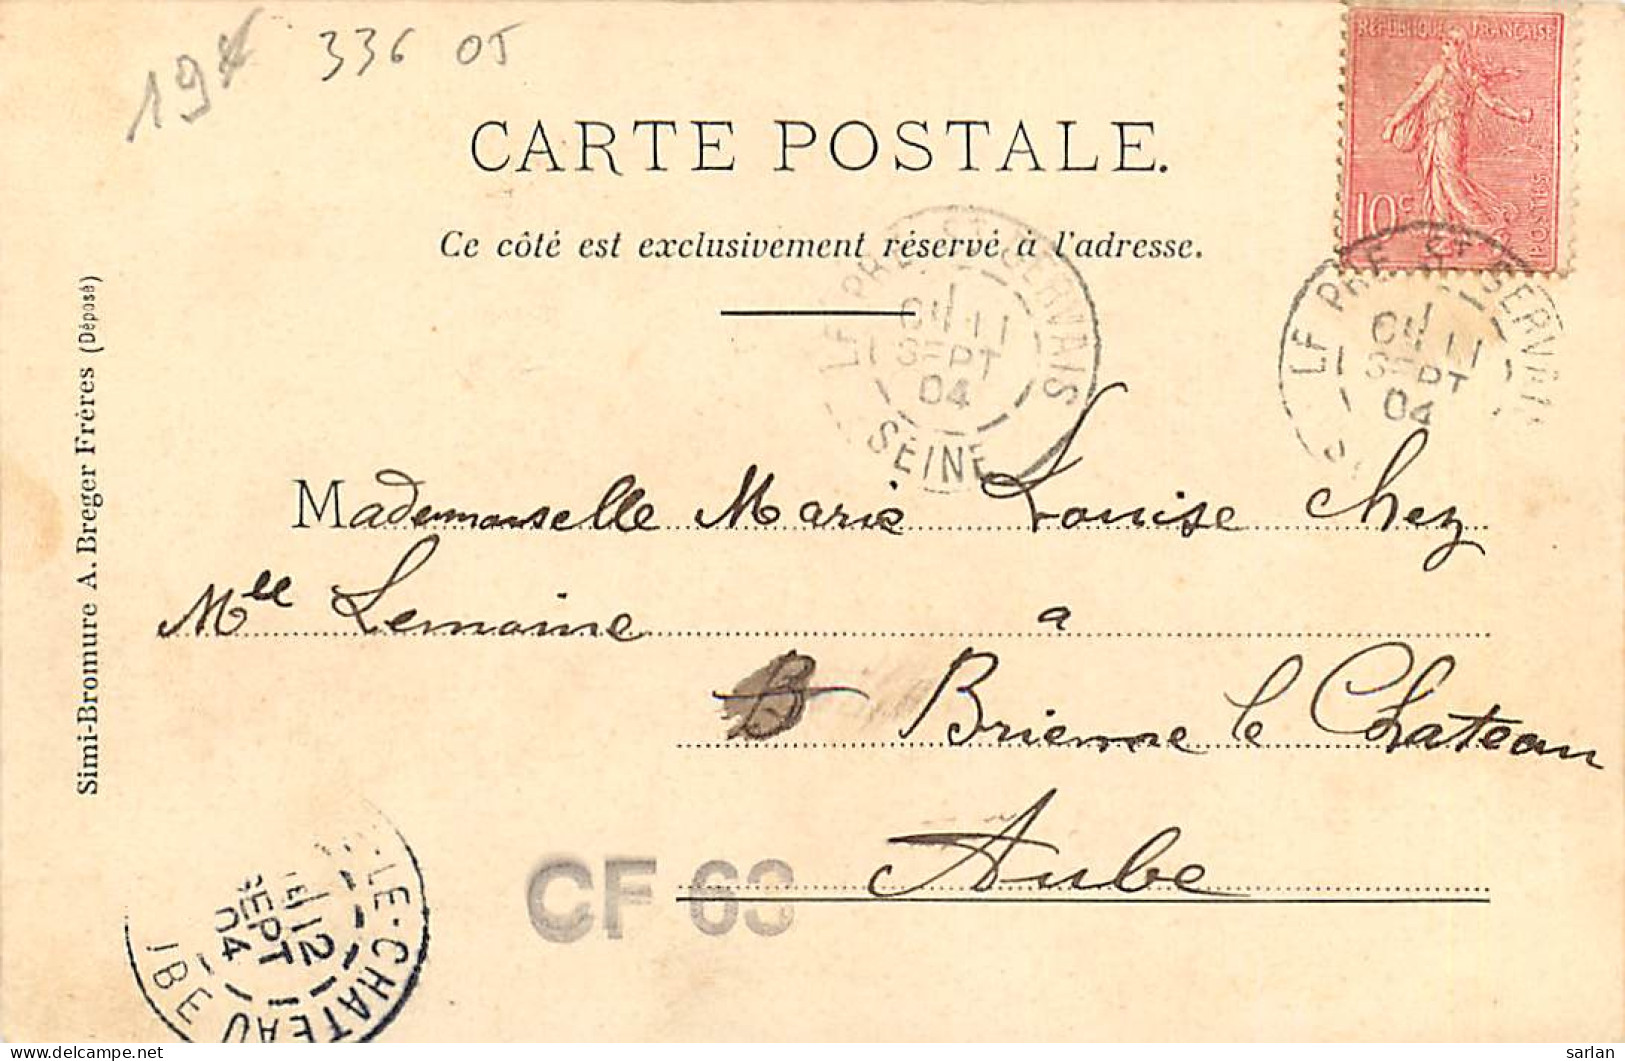 19 336 05
CARTE POSTALE.
Ce côté est exclusivement réservé à l'adresse.
REPUBLIQUE FRANÇAISE
10c
POSTES
LE PRE ST SERVAIS
11
SEPT
04
SEINE
LE PRE ST SERVAIS
11
SEPT
04
Simi-Bromure A. Breger Frères (Déposé)
Mademoiselle Marie Louise chez
Mlle Lemoine a
B Brienne le Chateau
Aube
CF 63
-LE-CHATEAU
12
SEPT
04
UBE
delcampe.net
sarlan